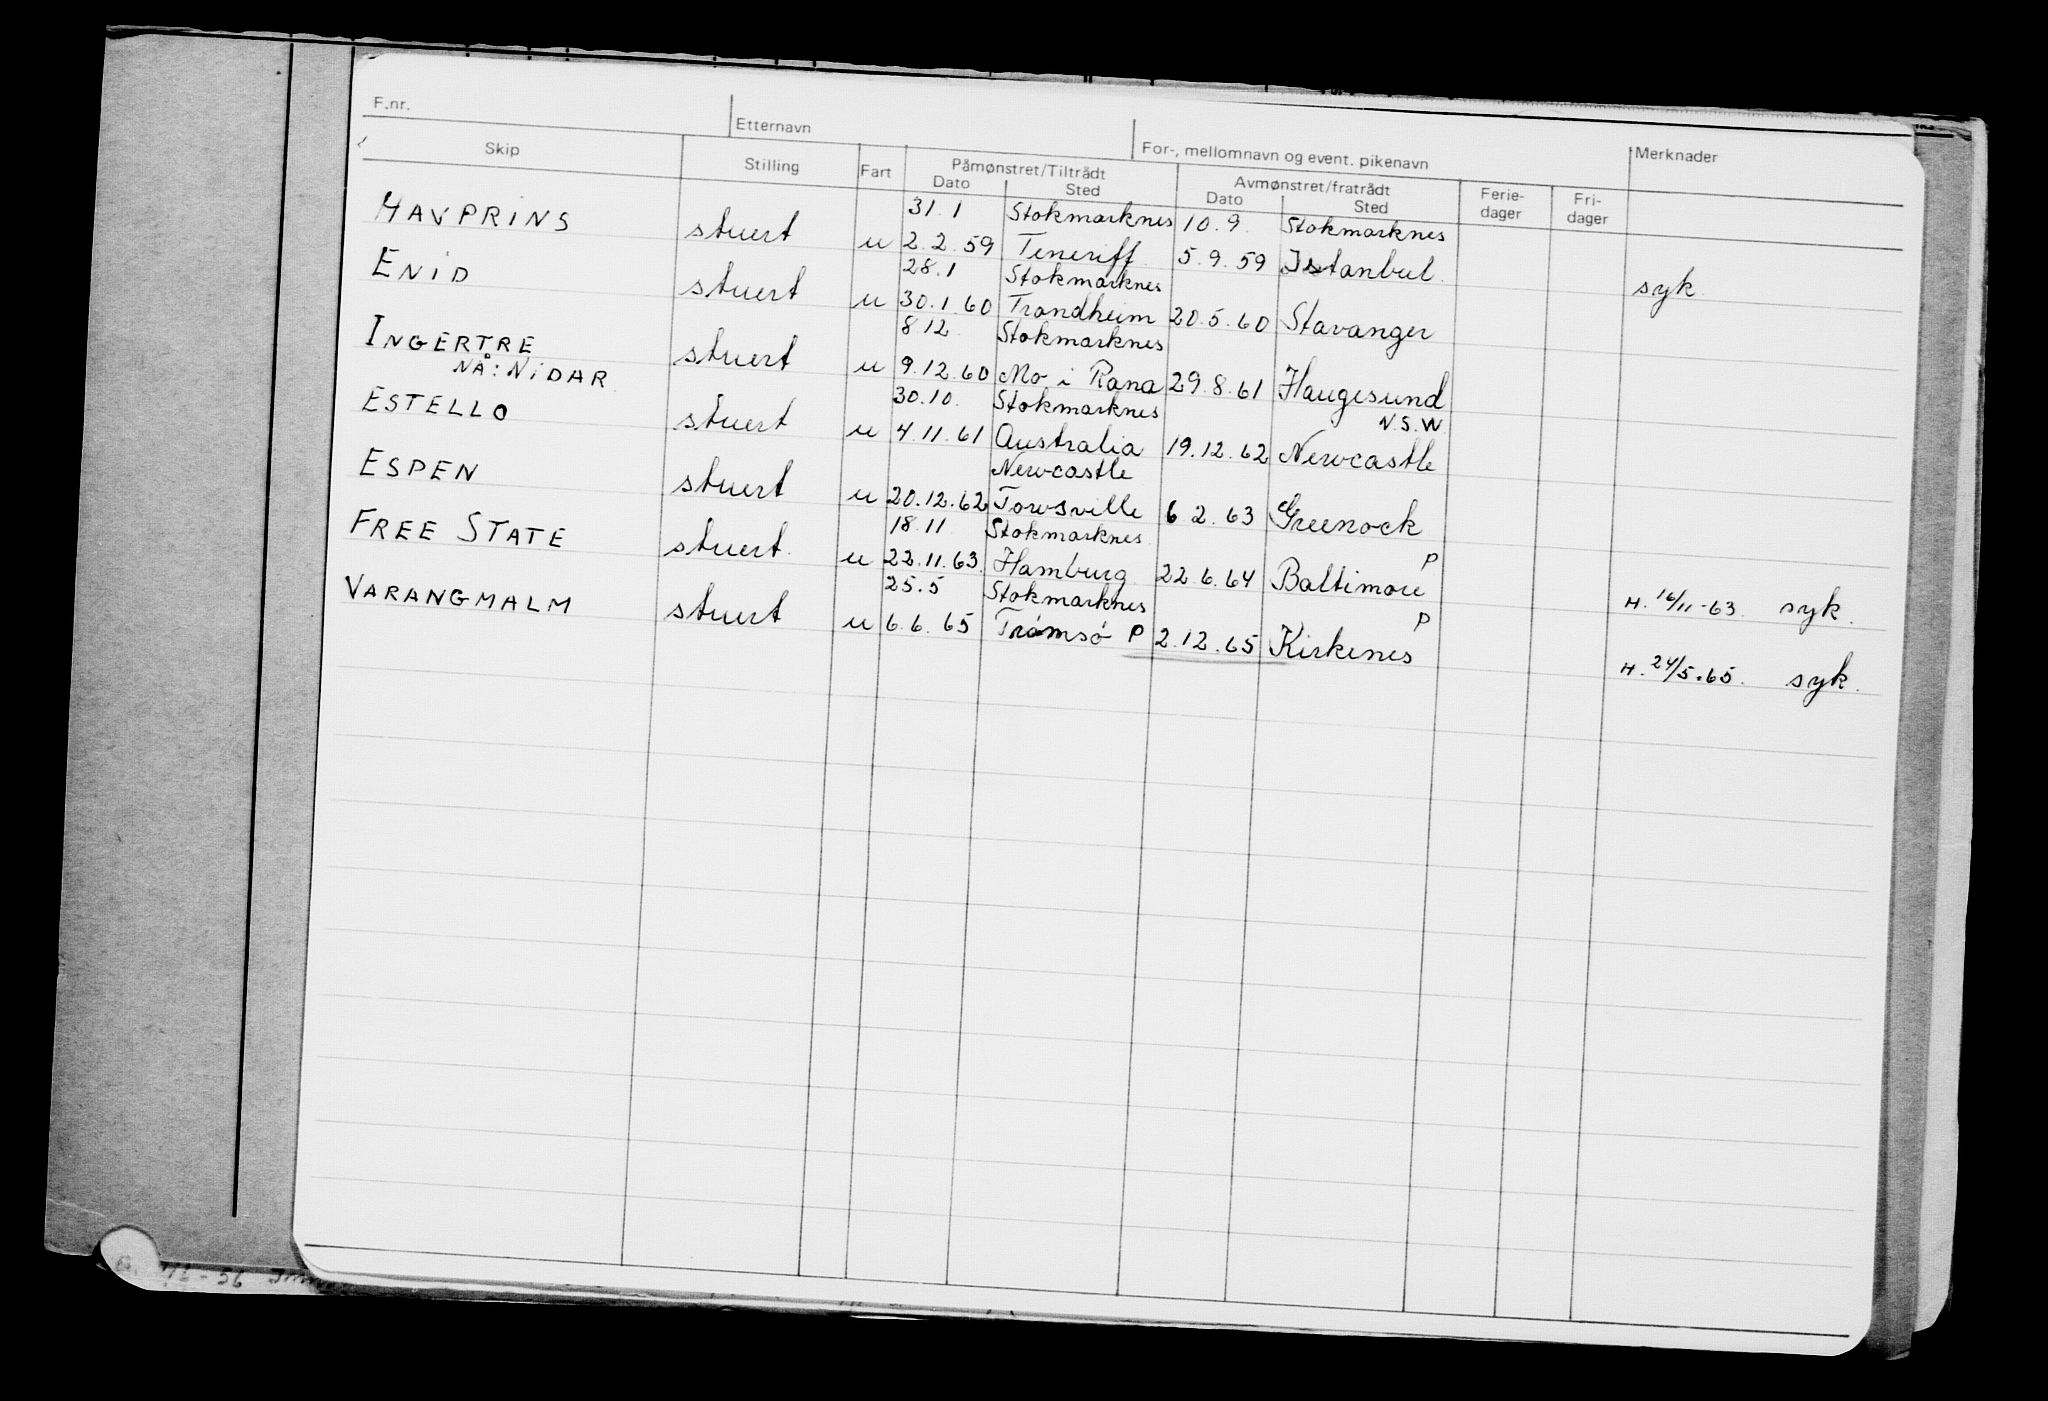 F.nr. Etternavn For-, mellomnavn og event. pikenavn Merknader
Skip Stilling Fart Påmønstret/Tiltrådt Avmønstret/fratrådt Ferie- Fri-
Dato Sted Dato Sted dager dager
31.1 Stokmarknes 10.9. Stokmarknes
HAVPRINS stuert u 2.2.59 Teneriff. 5.9.59 Istanbul. syk.
28.1 Stokmarknes
ENID stuert u 30.1.60 Trondheim 20.5.60 Stavanger
8.12. Stokmarknes
INGERTRE stuert u 9.12.60 Mo i Rana 29.8.61 Haugesund
NÅ: NIDAR.
30.10. Stokmarknes N.S.W.
ESTELLO stuert u 4.11.61 Australia 19.12.62 Newcastle
Newcastle
ESPEN stuert u 20.12.62 Towsville 6 2.63 Greenock
18.11 Stokmarknes. P
FREE STATE stuert. u 22.11.63. Hamburg. 22.6.64 Baltimore H. 16/11-63. syk.
25.5 Stokmarknes P
VARANGMALM stuert u 6.6.65 Tromsó P 2.12.65 Kirkenes H. 24/5.65. syk.
- 56